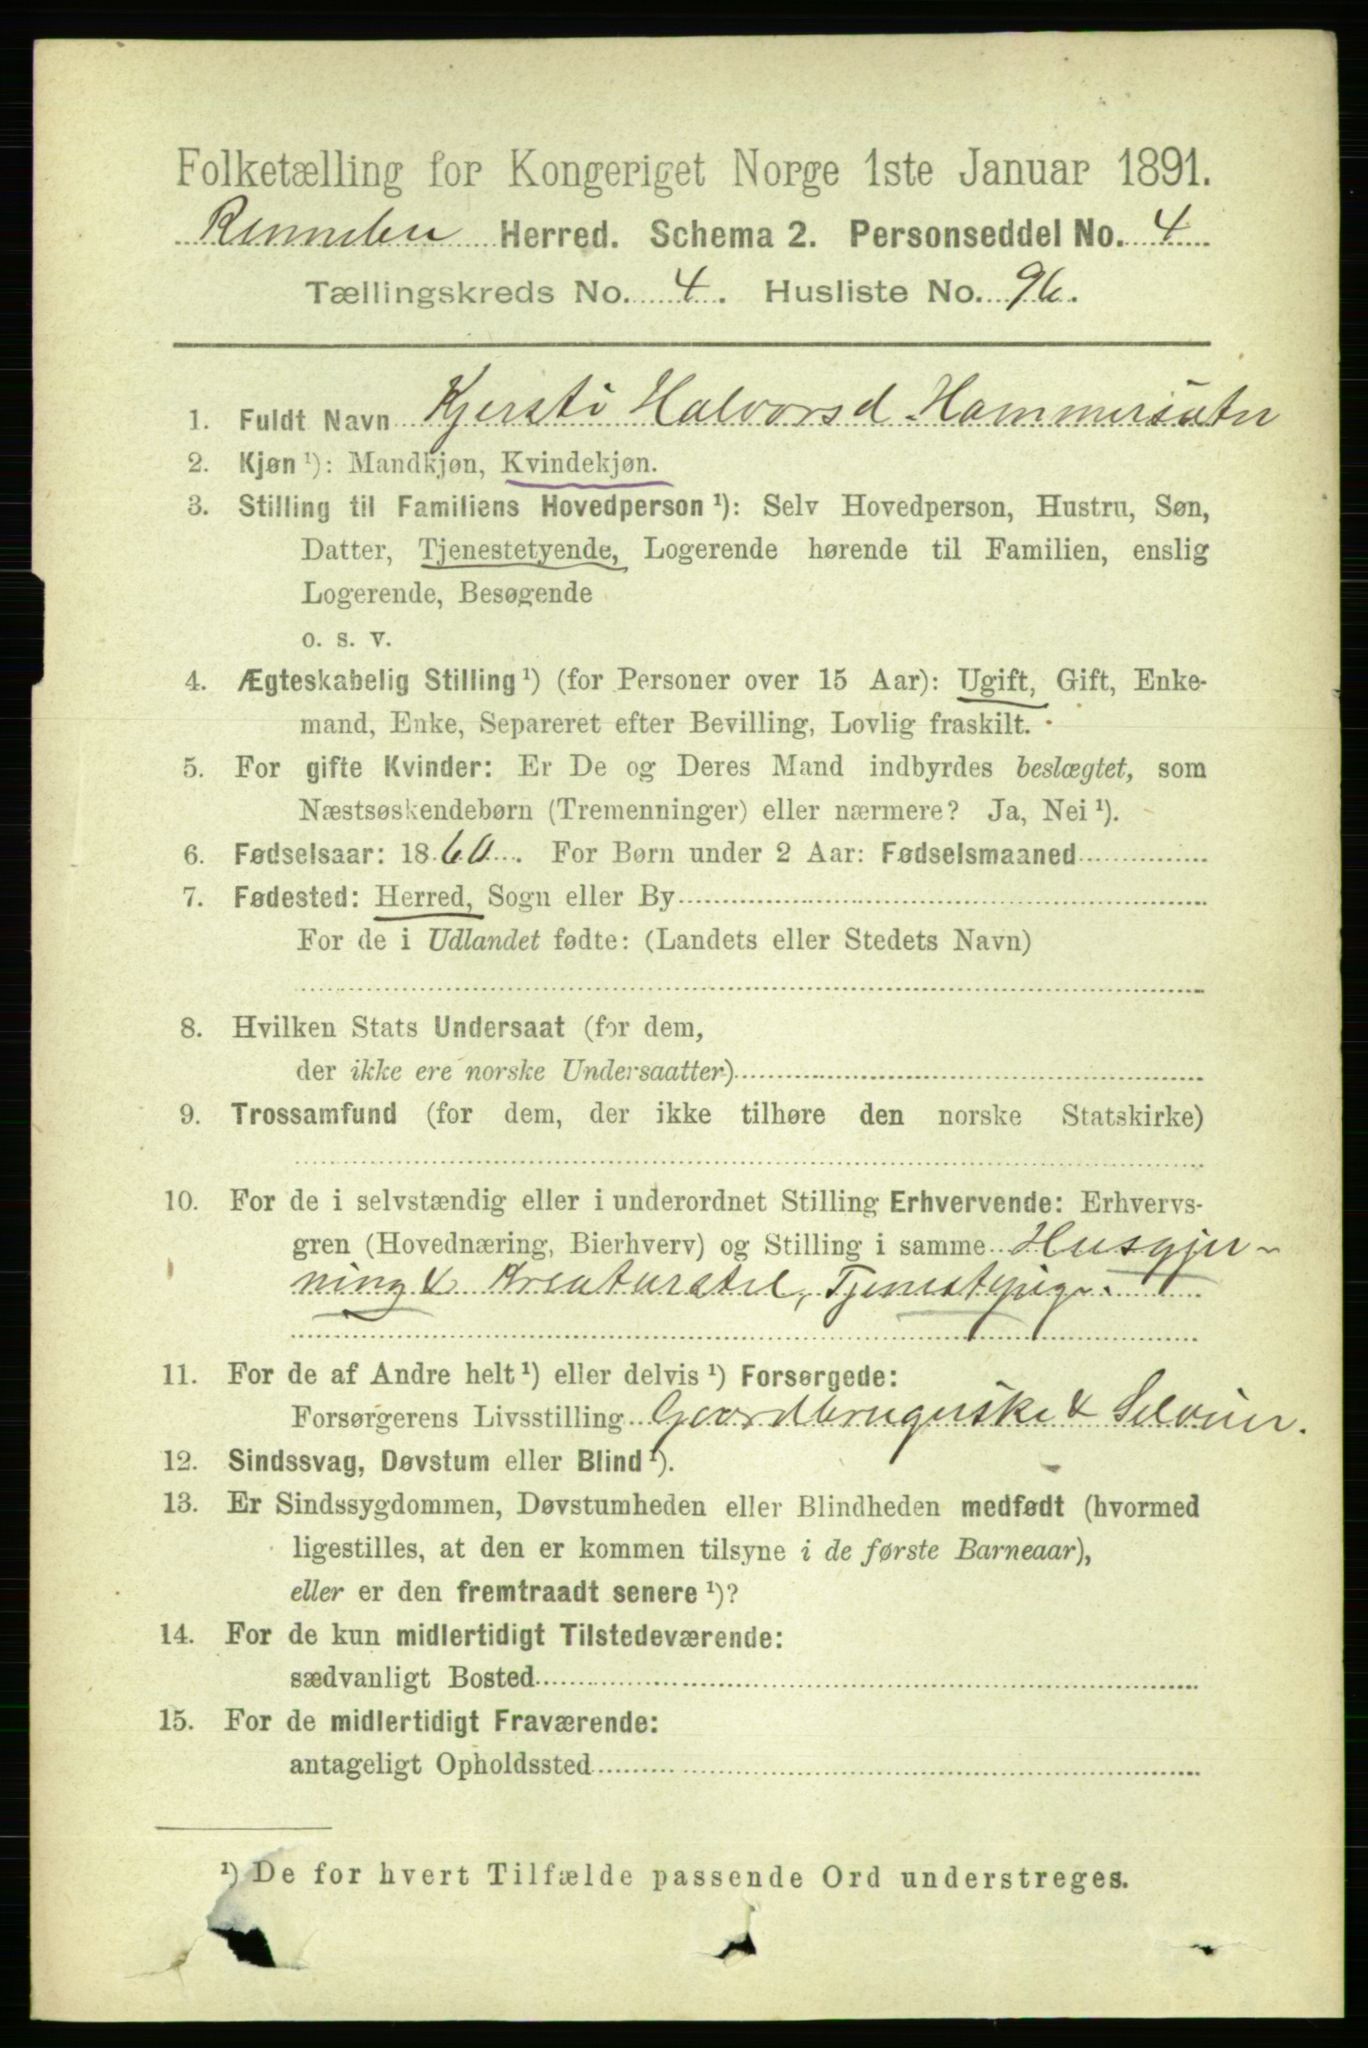 Folketælling for Kongeriget Norge 1ste Januar 1891.
Rennebu Herred. Schema 2. Personseddel No. 4
Tællingskreds No. 4. Husliste No. 96.
1. Fuldt Navn Kjersti Halvorsd. Hammersæter
2. Kjøn ¹): Mandkjøn, Kvindekjøn.
3. Stilling til Familiens Hovedperson ¹): Selv Hovedperson, Hustru, Søn,
Datter, Tjenestetyende, Logerende hørende til Familien, enslig
Logerende, Besøgende
o. s. v.
4. Ægteskabelig Stilling ¹) (for Personer over 15 Aar): Ugift, Gift, Enke-
mand, Enke, Separeret efter Bevilling, Lovlig fraskilt.
5. For gifte Kvinder: Er De og Deres Mand indbyrdes beslægtet, som
Næstsøskendebørn (Tremenninger) eller nærmere? Ja, Nei ¹).
6. Fødselsaar: 1860. For Børn under 2 Aar: Fødselsmaaned
7. Fødested: Herred, Sogn eller By
For de i Udlandet fødte: (Landets eller Stedets Navn)
8. Hvilken Stats Undersaat (for dem,
der ikke ere norske Undersaatter)
9. Trossamfund (for dem, der ikke tilhøre den norske Statskirke)
10. For de i selvstændig eller i underordnet Stilling Erhvervende: Erhvervs-
gren (Hovednæring, Bierhverv) og Stilling i samme Husgjer-
ning & Kreaturstel, Tjenestepige.
11. For de af Andre helt ¹) eller delvis ¹) Forsørgede:
Forsørgerens Livsstilling Gaardbrugerske & Selveier.
12. Sindssvag, Døvstum eller Blind ¹).
13. Er Sindssygdommen, Døvstumheden eller Blindheden medfødt (hvormed
ligestilles, at den er kommen tilsyne i de første Barneaar),
eller er den fremtraadt senere ¹)?
14. For de kun midlertidigt Tilstedeværende:
sædvanligt Bosted
15. For de midlertidigt Fraværende:
antageligt Opholdssted
¹) De for hvert Tilfælde passende Ord understreges.